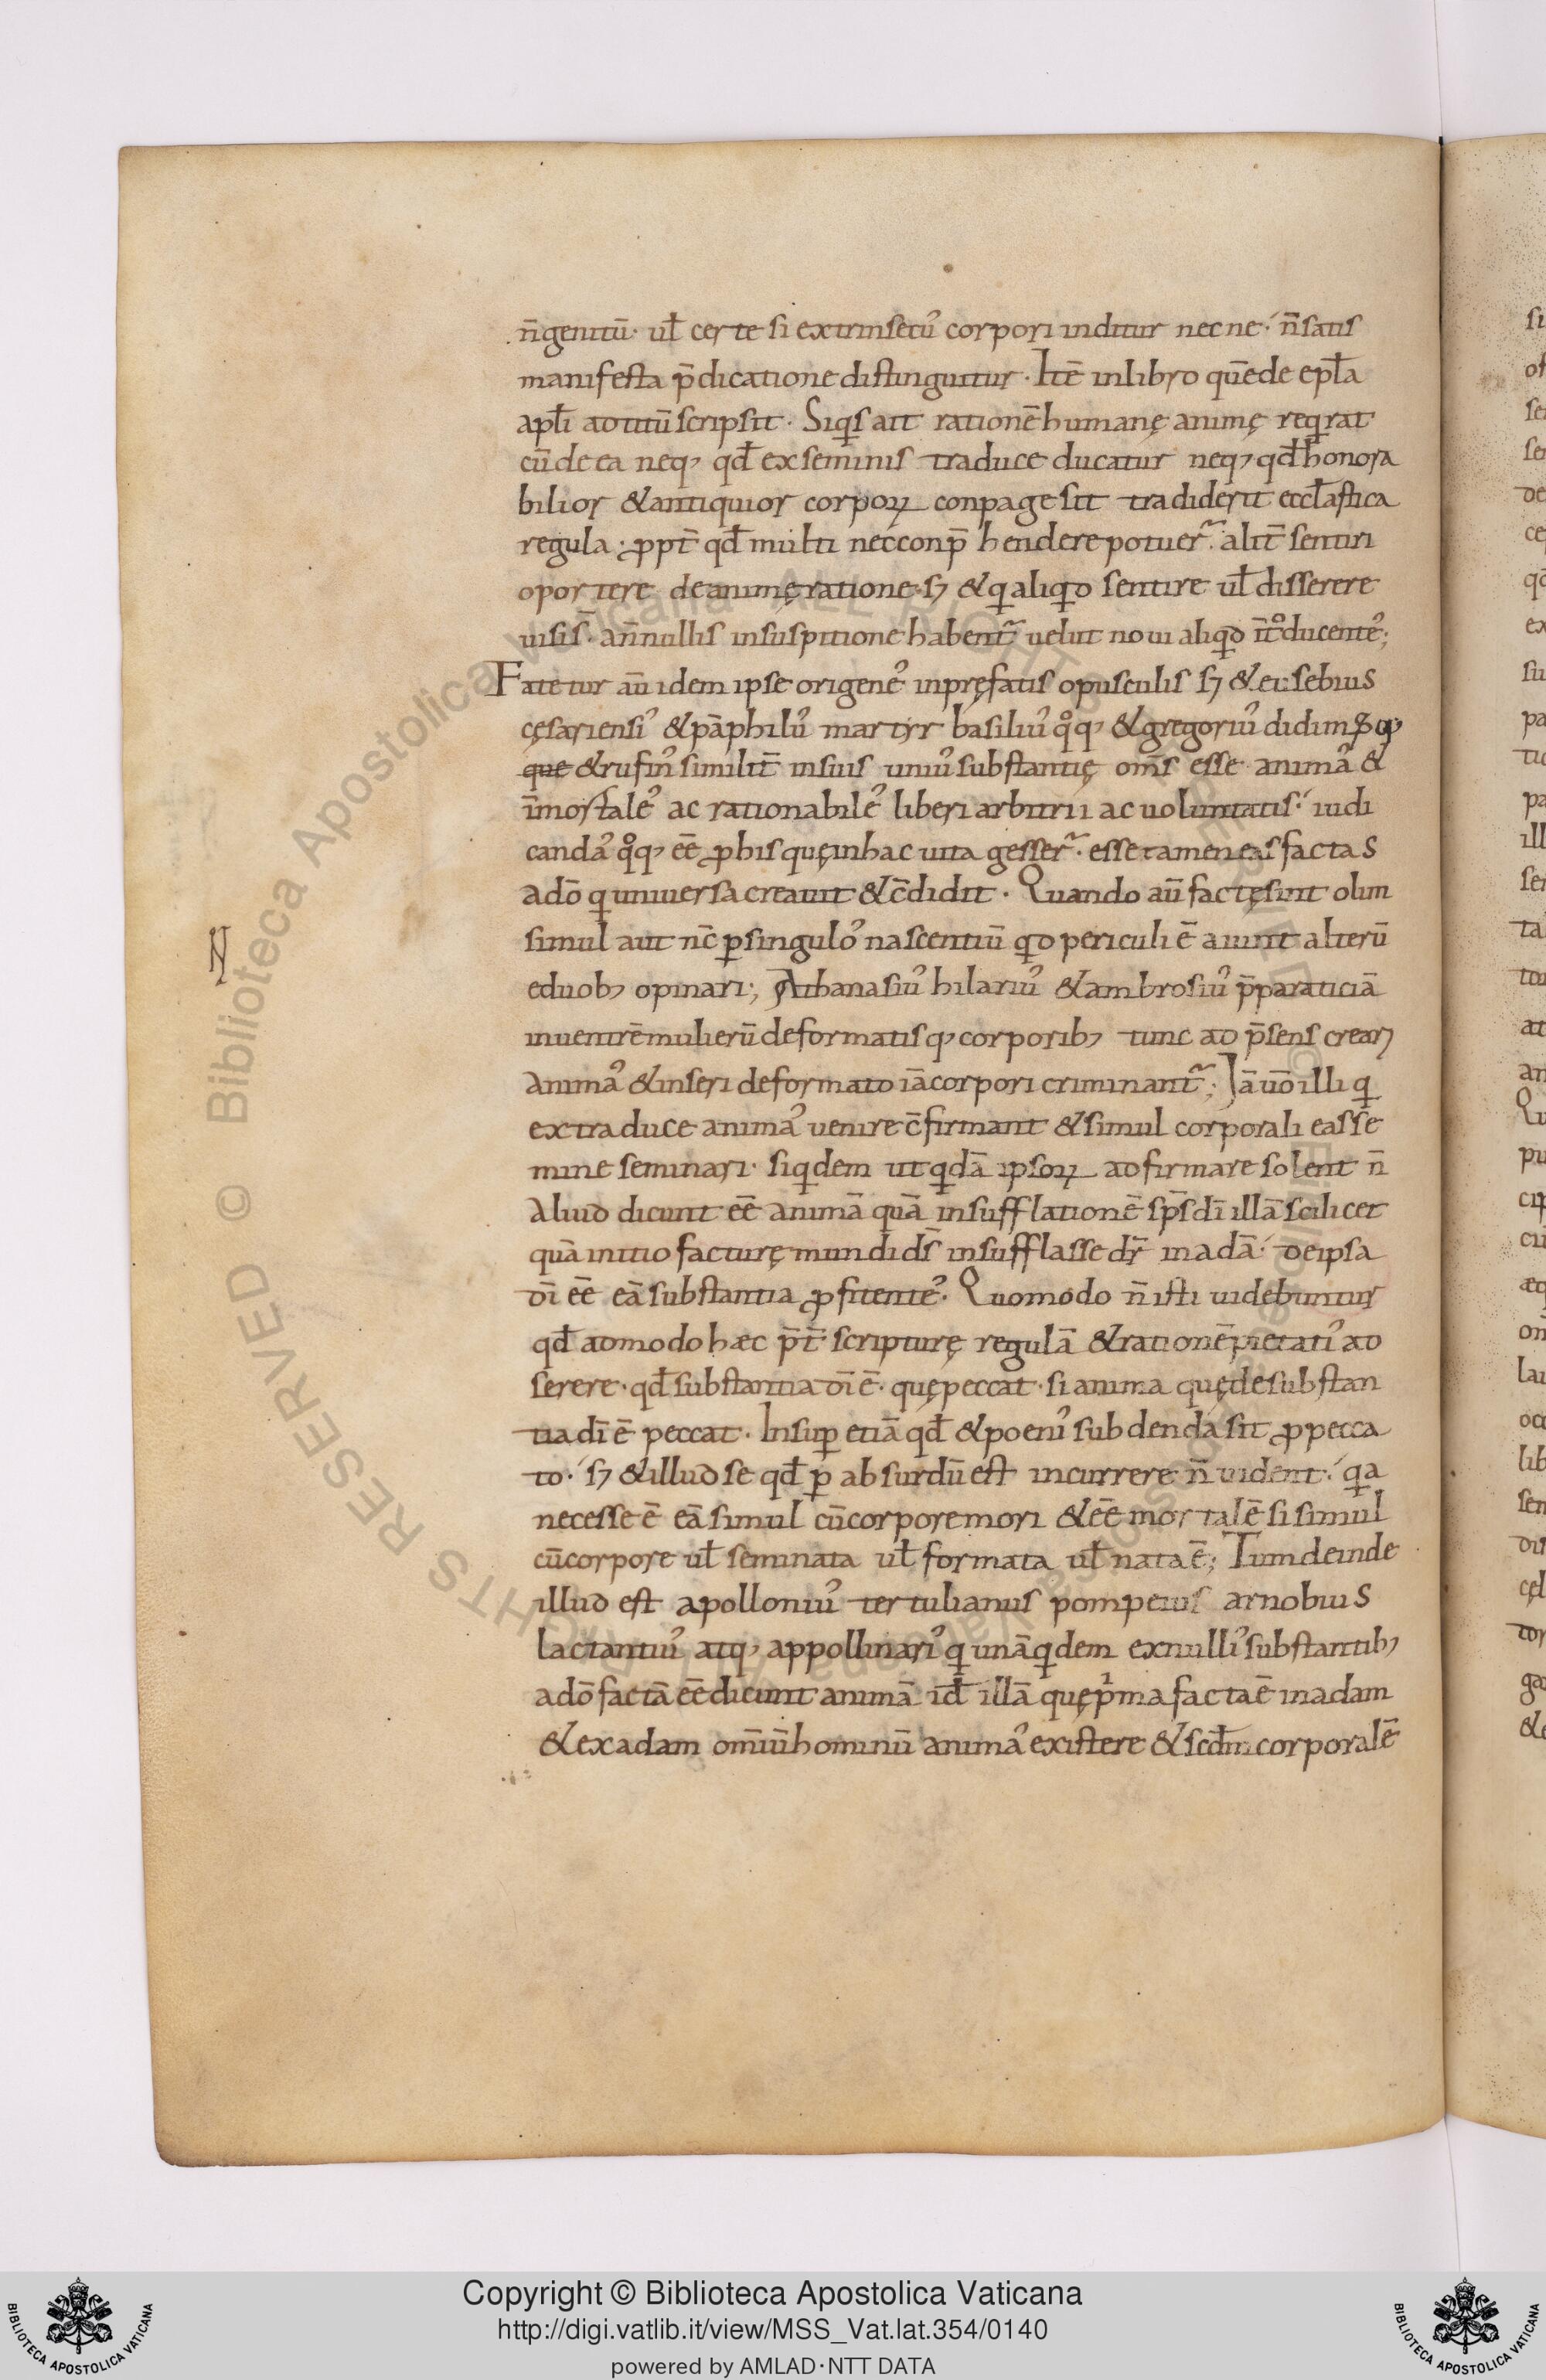 n̄genitū· ul̄ certe si extrinsecu᾽ corpori inditur nec ne·́ n̄ satis
manifesta p̄dicatione distinguitur· Itē in libro quē de epl̄a
apl̄i ad titū scripsit· Siq̇s ait rationē humanę animę reqrat
cū de ea neq; qd̄ ex seminis traduce ducatur neq; qd̄ honora
bilior & antiquior corpoꝝ conpage sit tradiderit eccl̄astica
regula· ꝓpt̄ qd̄ multi nec conp̄hendere potuer̃· alit̄ sentiri
oportere de animę ratione· s; & q aliqd sentire ul̄ disserere
uisi s̄· an̄nullis in suspitione habent̃ uelut noui aliqd īt°ducente᾽;
Fatetur aū idem ipse origene᾽ in pręfatis opusculis s; & eusebius
cęsariensi᾽ & pāphilu᾽ martyr basiliu᾽ q°q; & gregoriu᾽ didim
que & rufin᾽ similit̄ in suis uniu᾽ substantię om̄s esse anima᾽ &
īmortale᾽ ac rationabile᾽ liberi arbitrii ac uoluntatis·́ iudi
canda᾽ q°q; eē ꝓ his quę in hac uita gesser̃· esse tamen eas factas
a dō q uniuersa creauit & c̄didit· Quando aū factę sint olim
simul aut nc̄ ꝑ singulo᾽ nascentiū qd periculi ē aiunt alterū
e duob; opinari·; Athanasiu᾽ hilariu᾽ & ambrosiu᾽ p̄paraticiā
in uentrē mulierū deformatisq; corporib; tunc ad p̄sens creari
anima᾽ & inseri deformato iā corpori criminant̃·; Iā uō illi q
ex traduce anima᾽ uenire c̄firmant & simul corporali eas se
mine seminari· siqdem ut qdā ipsoꝝ adfirmare solent n̄
aliud dicunt eē animā quā insufflationē sp̄s dī illā scilicet
quā initio facturę mundi ds̄ insufflasse dr̄ in adā·́ de ipsa
dī eē eā substantia ꝓfitente᾽· Quomodo n̄ isti uidebuntur
qd̄ admodo hæc p̄t̄ scripturę regulā & rationē pietati᾽ ad
serere· qd̄ substantia dī ē· quę peccat· si anima quę de substan
tia dī ē peccat· Insuꝑ etiā qd̄ & poeni᾽ subdenda sit ꝓ pecca
to·́ s; & illud se qd̄ ꝑ absurdū est incurrere n̄ uident·́ qa
necesse ē eā simul cū corpore mori & eē mortalē si simul
cū corpore ul̄ seminata ul̄ formata ul̄ nata ē; Tum deinde
illud est apolloniu᾽ tertulianus pompeius arnobius
lactantiu᾽ atq; appollinari᾽ q unā qdem ex nulli᾽ substantib;
a dō factā eē dicunt animā id̄ illā quę pͥma facta ē in adam
& ex adam om̄iū hominū anima᾽ existere & scd̄m corporalē
N
Copyright © Biblioteca Apostolica Vaticana
http://digi.vatlib.it/view/MSS_Vat.lat.354/0140
powered by AMLAD·NTT DATA
BIBLIOTECA APOSTOLICA VATICANA
BIBLIOTECA APOSTOLICA VATICANA